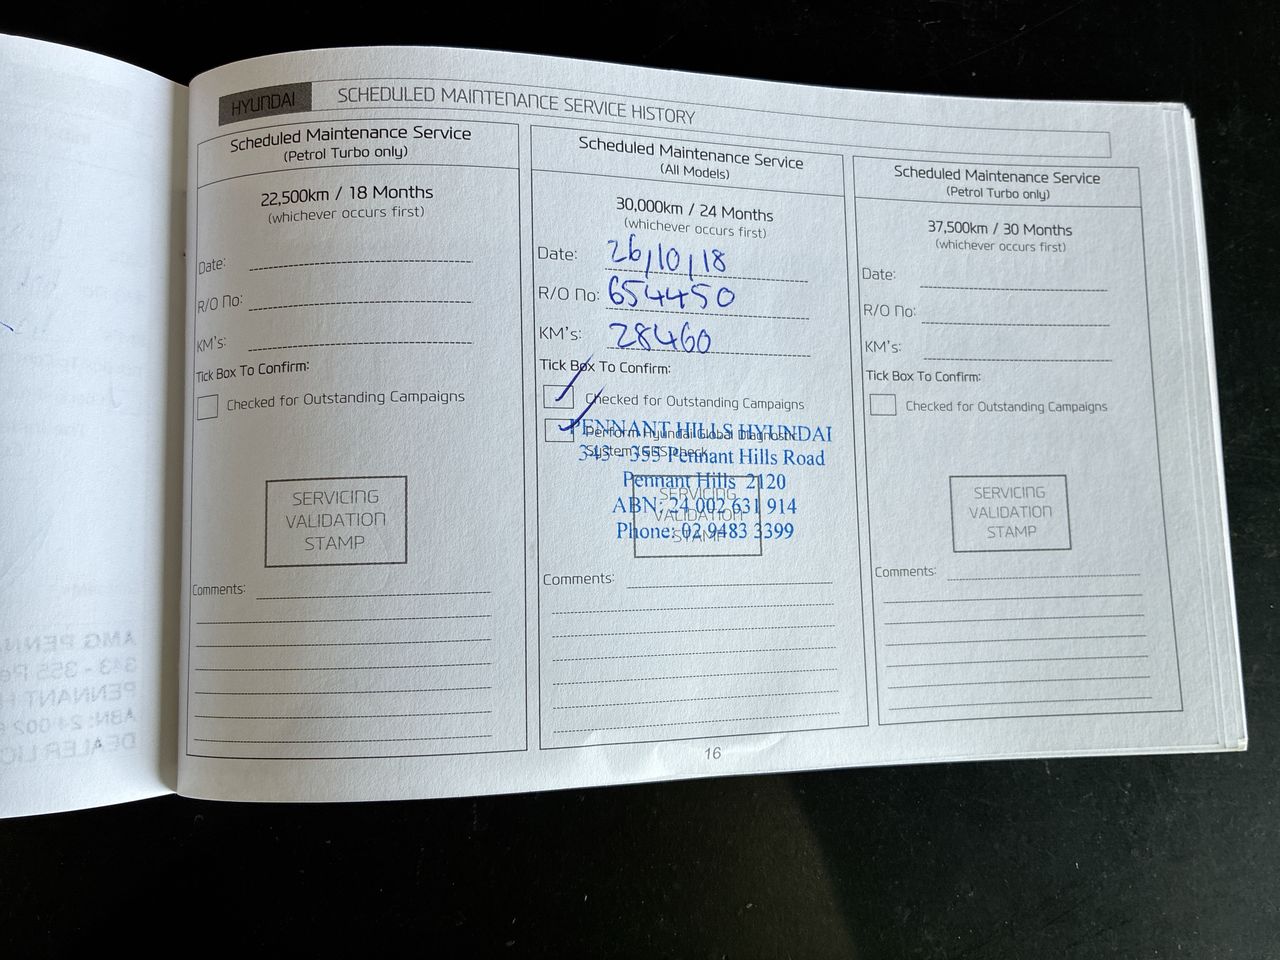 HYUNDAI SCHEDULED MAINTENANCE SERVICE HISTORY
Scheduled Maintenance Service
(Petrol Turbo only)
22,500km / 18 Months
(whichever occurs first)
Date:
R/O No:
KM's:
Tick Box To Confirm:
Checked for Outstanding Campaigns
SERVICING
VALIDATION
STAMP
Comments:
Scheduled Maintenance Service
(All Models)
30,000km / 24 Months
(whichever occurs first)
Date: 26/10/18
R/O No: 654450
KM's: 28460
Tick Box To Confirm:
Checked for Outstanding Campaigns
Perform Hyundai Global Diagnostic
System (GDS) check
PENNANT HILLS HYUNDAI
343 - 355 Pennant Hills Road
Pennant Hills 2120
ABN: 24 002 631 914
Phone: 02 9483 3399
SERVICING
VALIDATION
STAMP
Comments:
Scheduled Maintenance Service
(Petrol Turbo only)
37,500km / 30 Months
(whichever occurs first)
Date:
R/O No:
KM's:
Tick Box To Confirm:
Checked for Outstanding Campaigns
SERVICING
VALIDATION
STAMP
Comments:
16